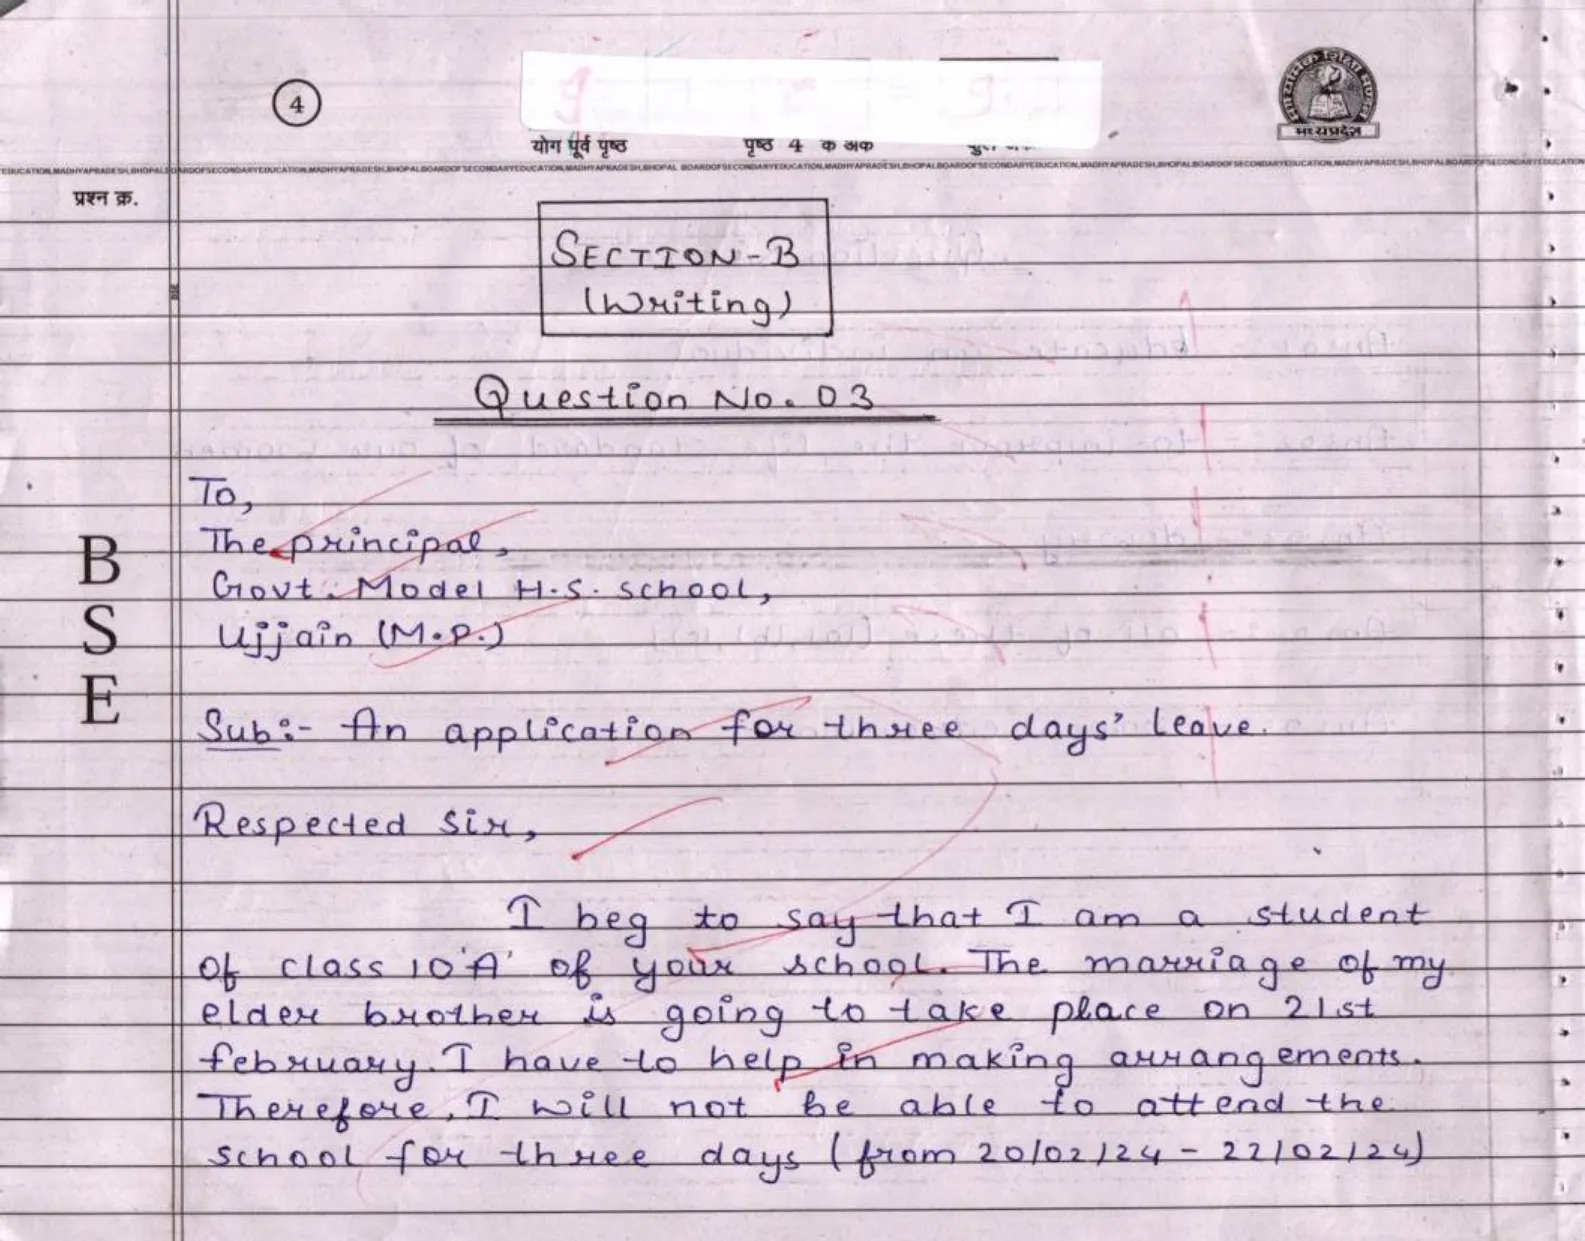 4
योग पूर्व पृष्ठ
पृष्ठ 4 क अक
मध्यप्रदेश
प्रश्न क्र.
SECTION-B
(Writing)
Question No. 03
To,
The principal,
Govt. Model H.S. school,
Ujjain (M.P.)
B
S
E
Sub:- An application for three days' leave.
Respected sir,
I beg to say that I am a student
of class 10'A' of your school. The marriage of my
elder brother is going to take place on 21st
february. I have to help in making arrangements.
Therefore, I will not be able to attend the
school for three days (from 20/02/24 - 22/02/24)